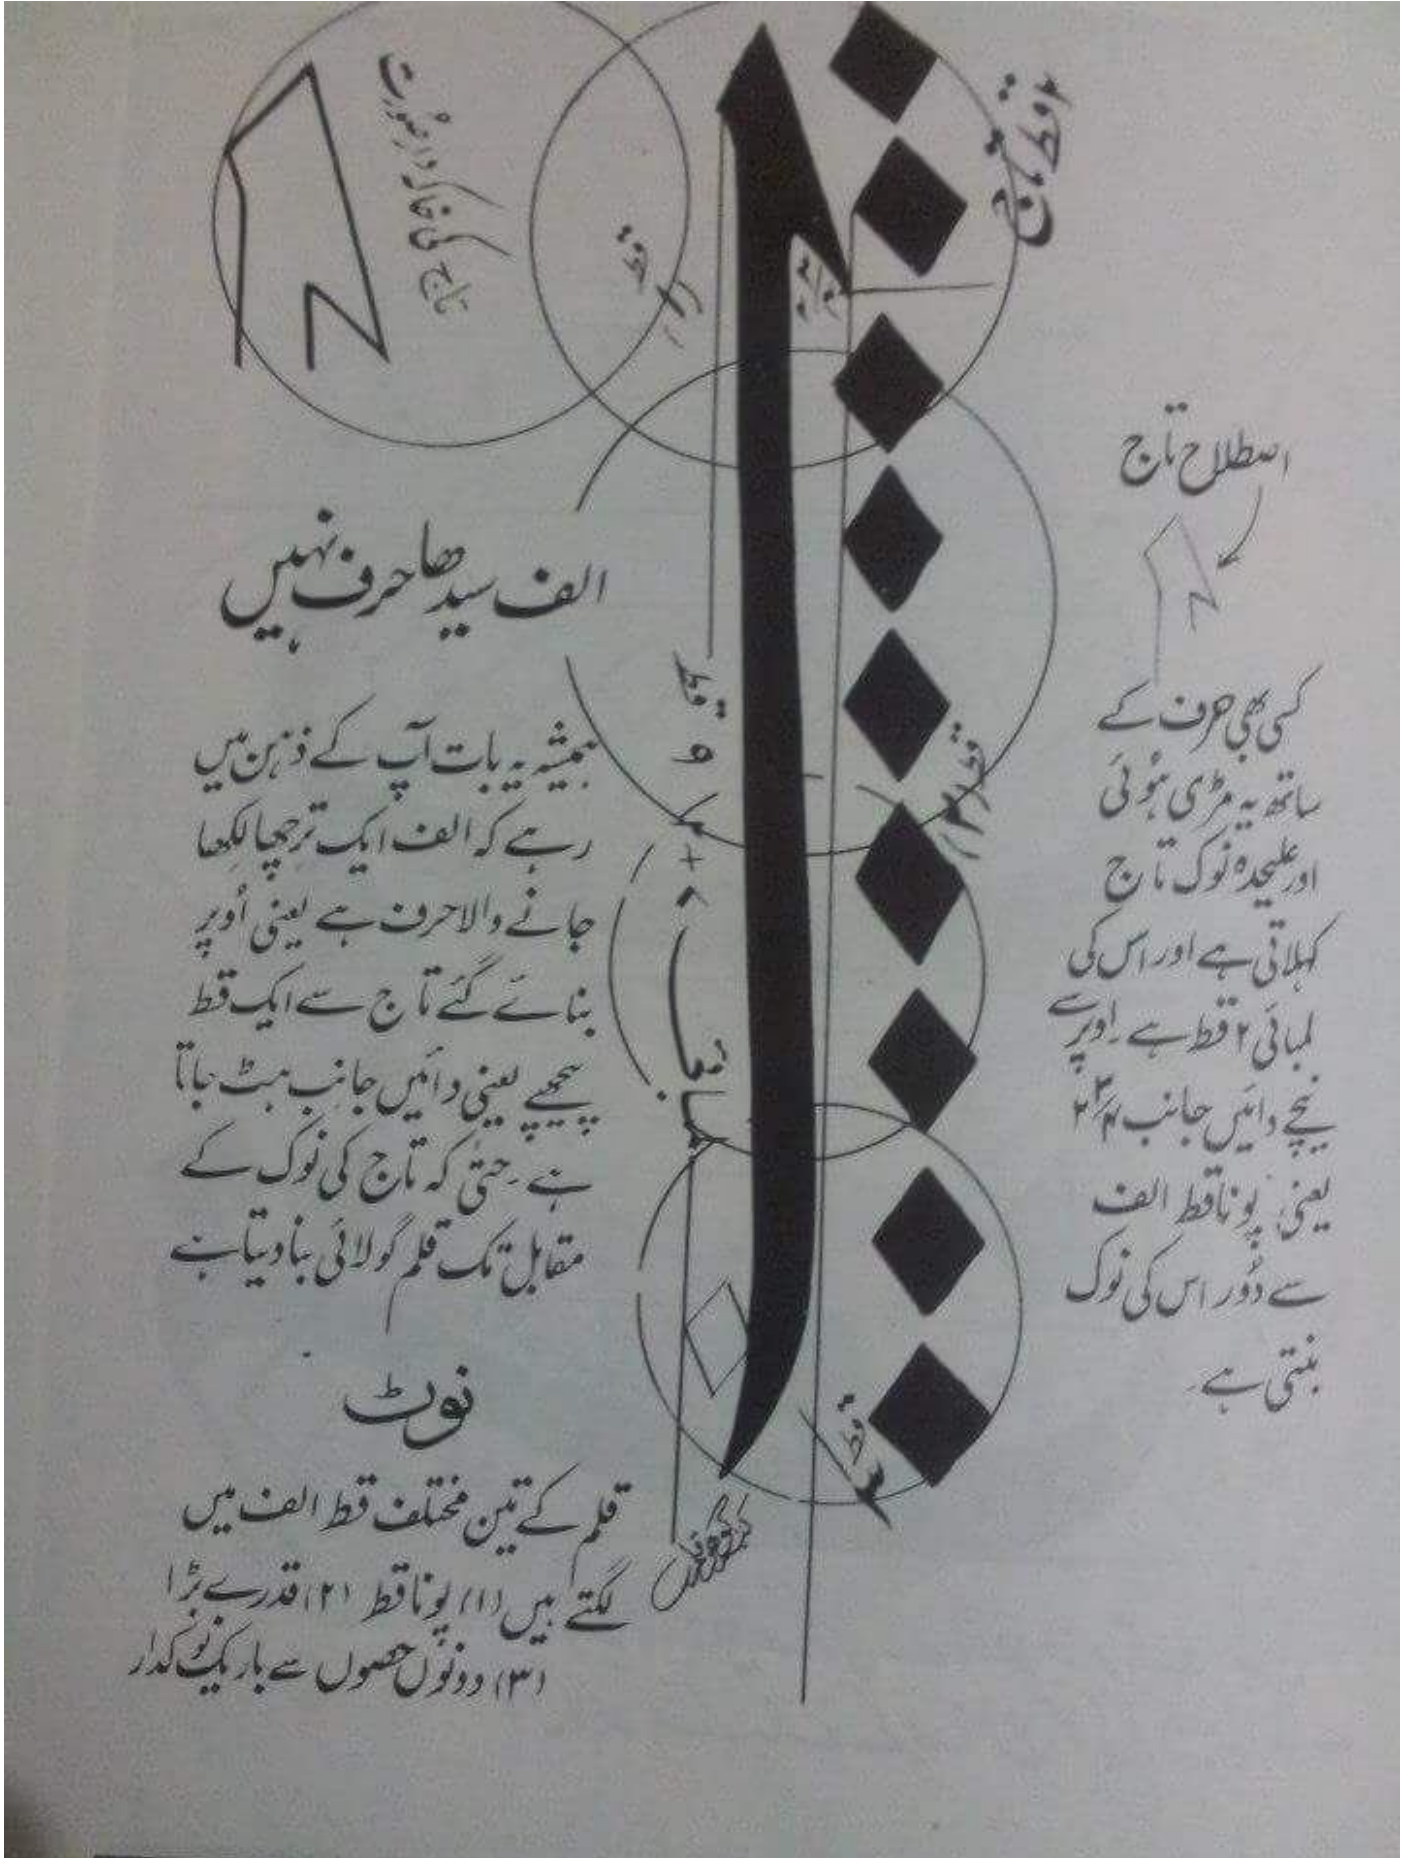 ۲ قط تاج
تاج کی خاکہ دار صُورت
قط
اصطلاح تاج
کسی بھی حرف کے
ساتھ یہ مڑی ہوئی
اور علیحدہ نوک تاج
کہلاتی ہے اور اس کی
لمبائی ۲ قط ہے۔ اوپر سے
نیچے دائیں جانب ۳/۴
یعنی پونا قط الف
سے دُور اس کی نوک
بنتی ہے۔
الف سیدھا حرف نہیں ہے
ہمیشہ یہ بات آپ کے ذہن میں
رہے کہ الف ایک ترچھا لکھا
جانے والا حرف ہے یعنی اُوپر
بنائے گئے تاج سے ایک قط
پیچھے یعنی دائیں جانب ہٹ جاتا
ہے۔ حتیٰ کہ تاج کی نوک کے
مقابل تک قلم گولائی بنا دیتا ہے
قط ۹
۳ قط
نوٹ
قلم کے تین مختلف قط الف میں
لگتے ہیں (۱) پونا قط (۲) قدرے بڑا
(۳) دونوں حصوں سے باریک نوکدار